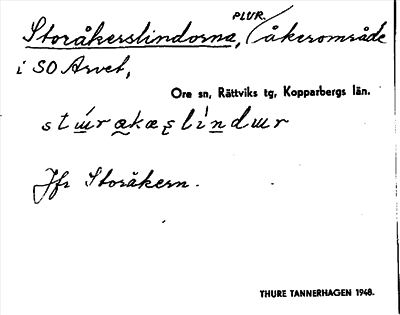 Storåkerslindorna, PLUR. / åkerområde
i SO Arvet,
Ore sn, Rättviks tg, Kopparbergs län.
Jfr Storåkern.
THURE TANNERHAGEN 1948.